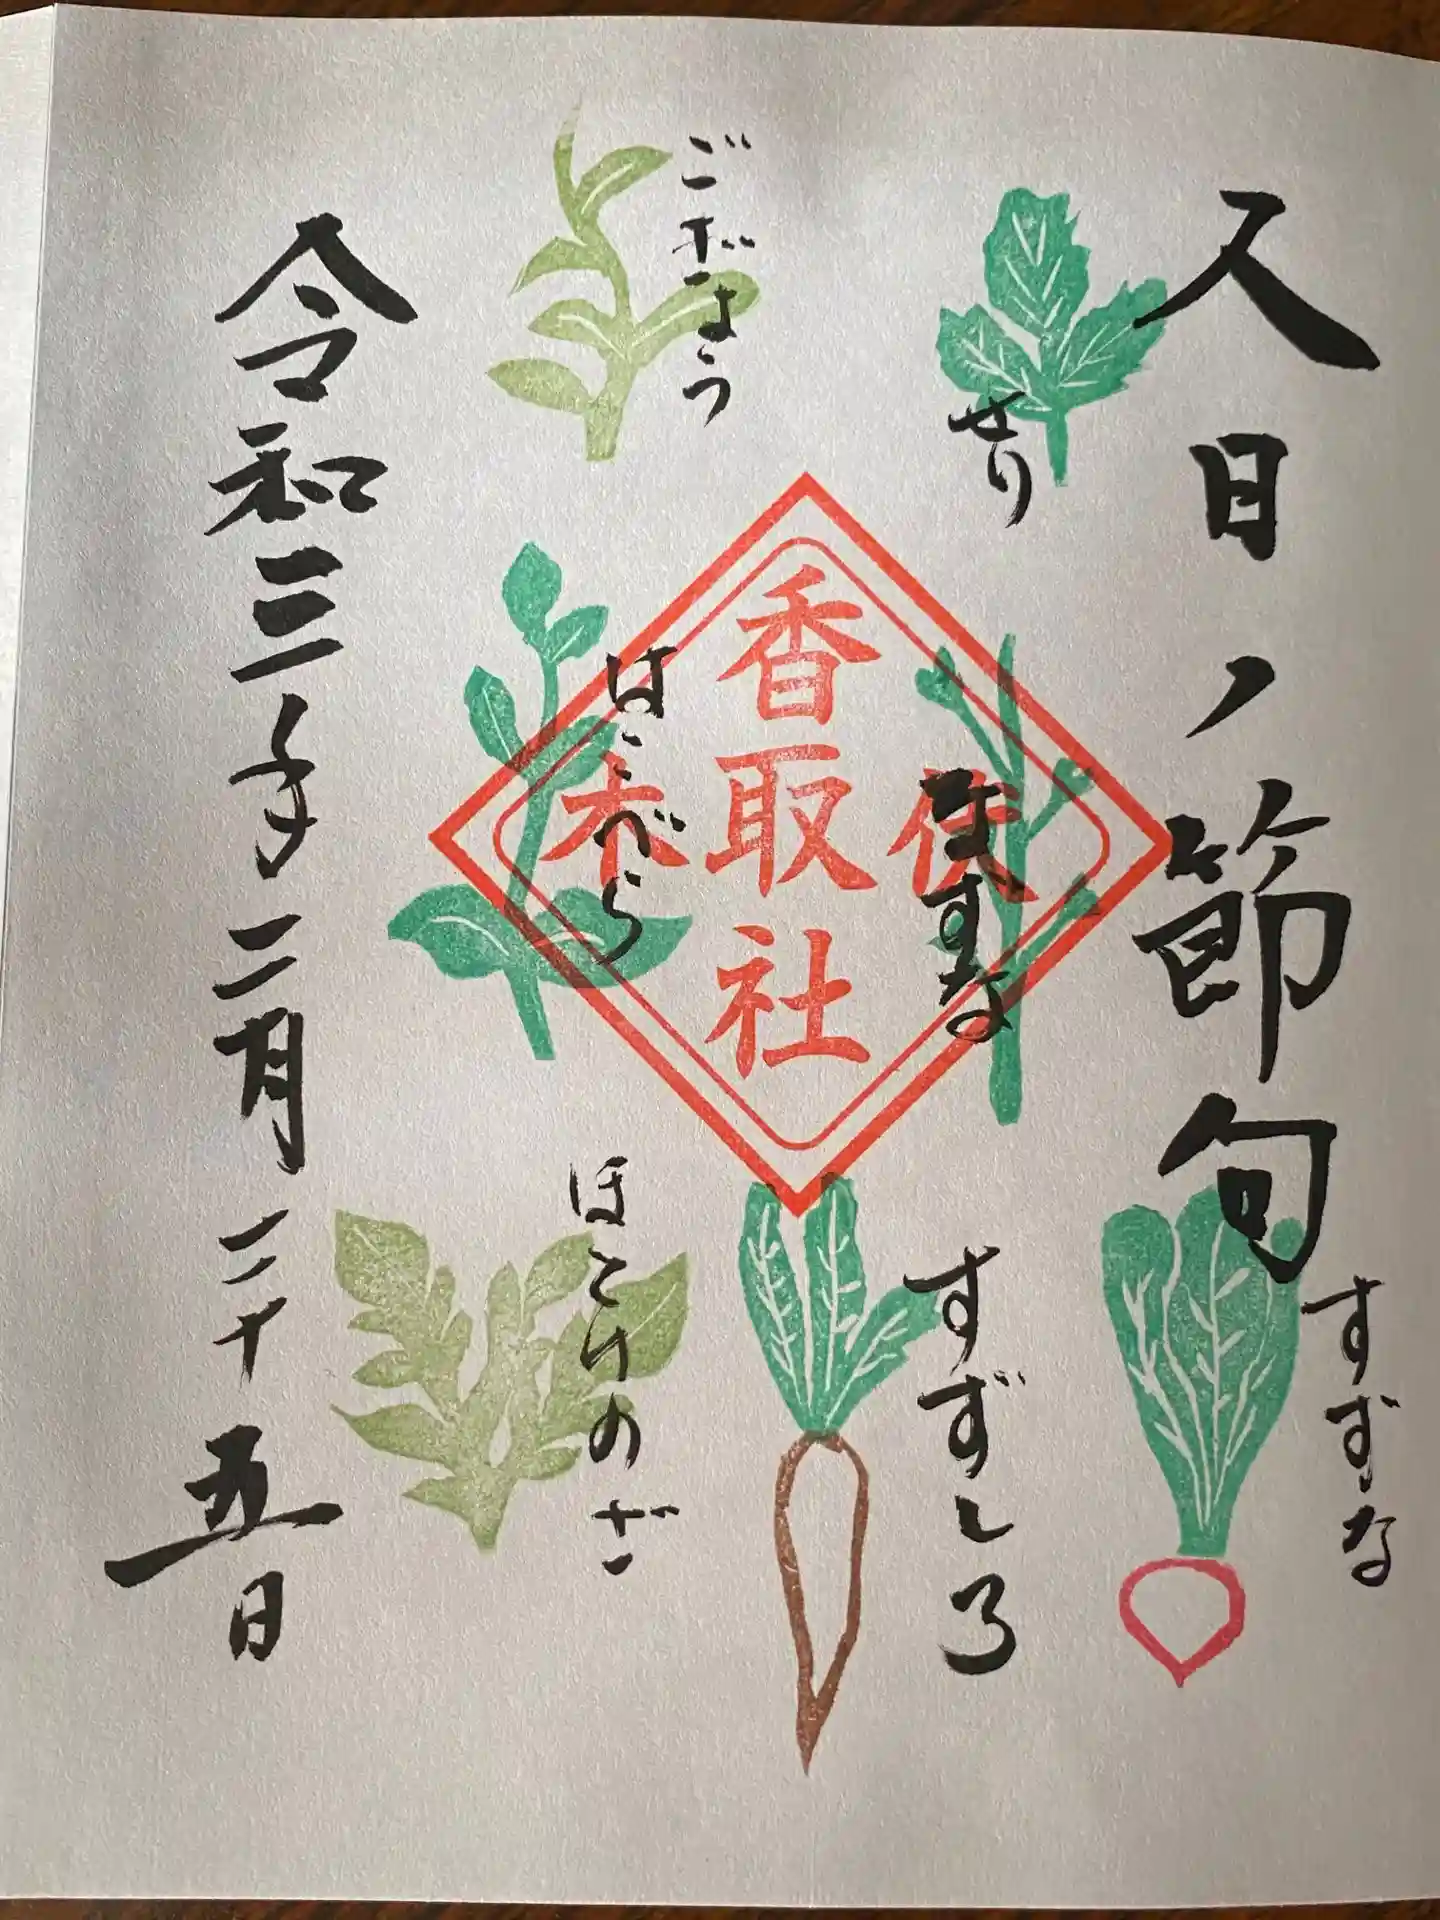 人日ノ節句
せり
なずな
すずな
すずしろ
ごぎょう
はこべら
ほとけのざ
香取社
伏木
令和三年二月二十五日